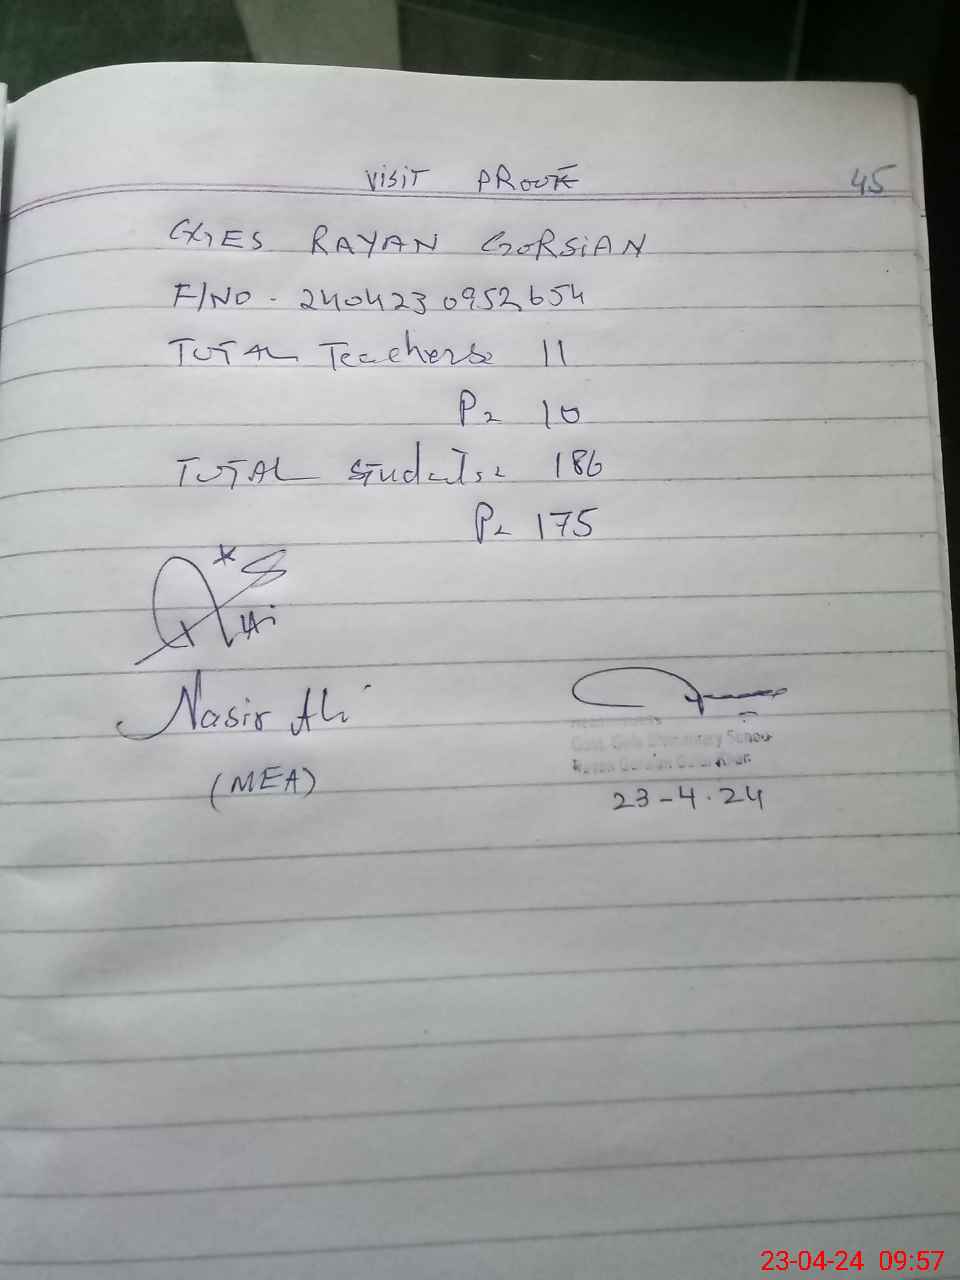 VISIT PROOF 45
GGES RAYAN GORSIAN
F/NO - 240423 0952654
TOTAL Teachers= 11
P= 10
TOTAL Students= 186
P= 175
Nasir Ali
(MEA)
Govt. Girls Elementary School
23-4-24
23-04-24 09:57